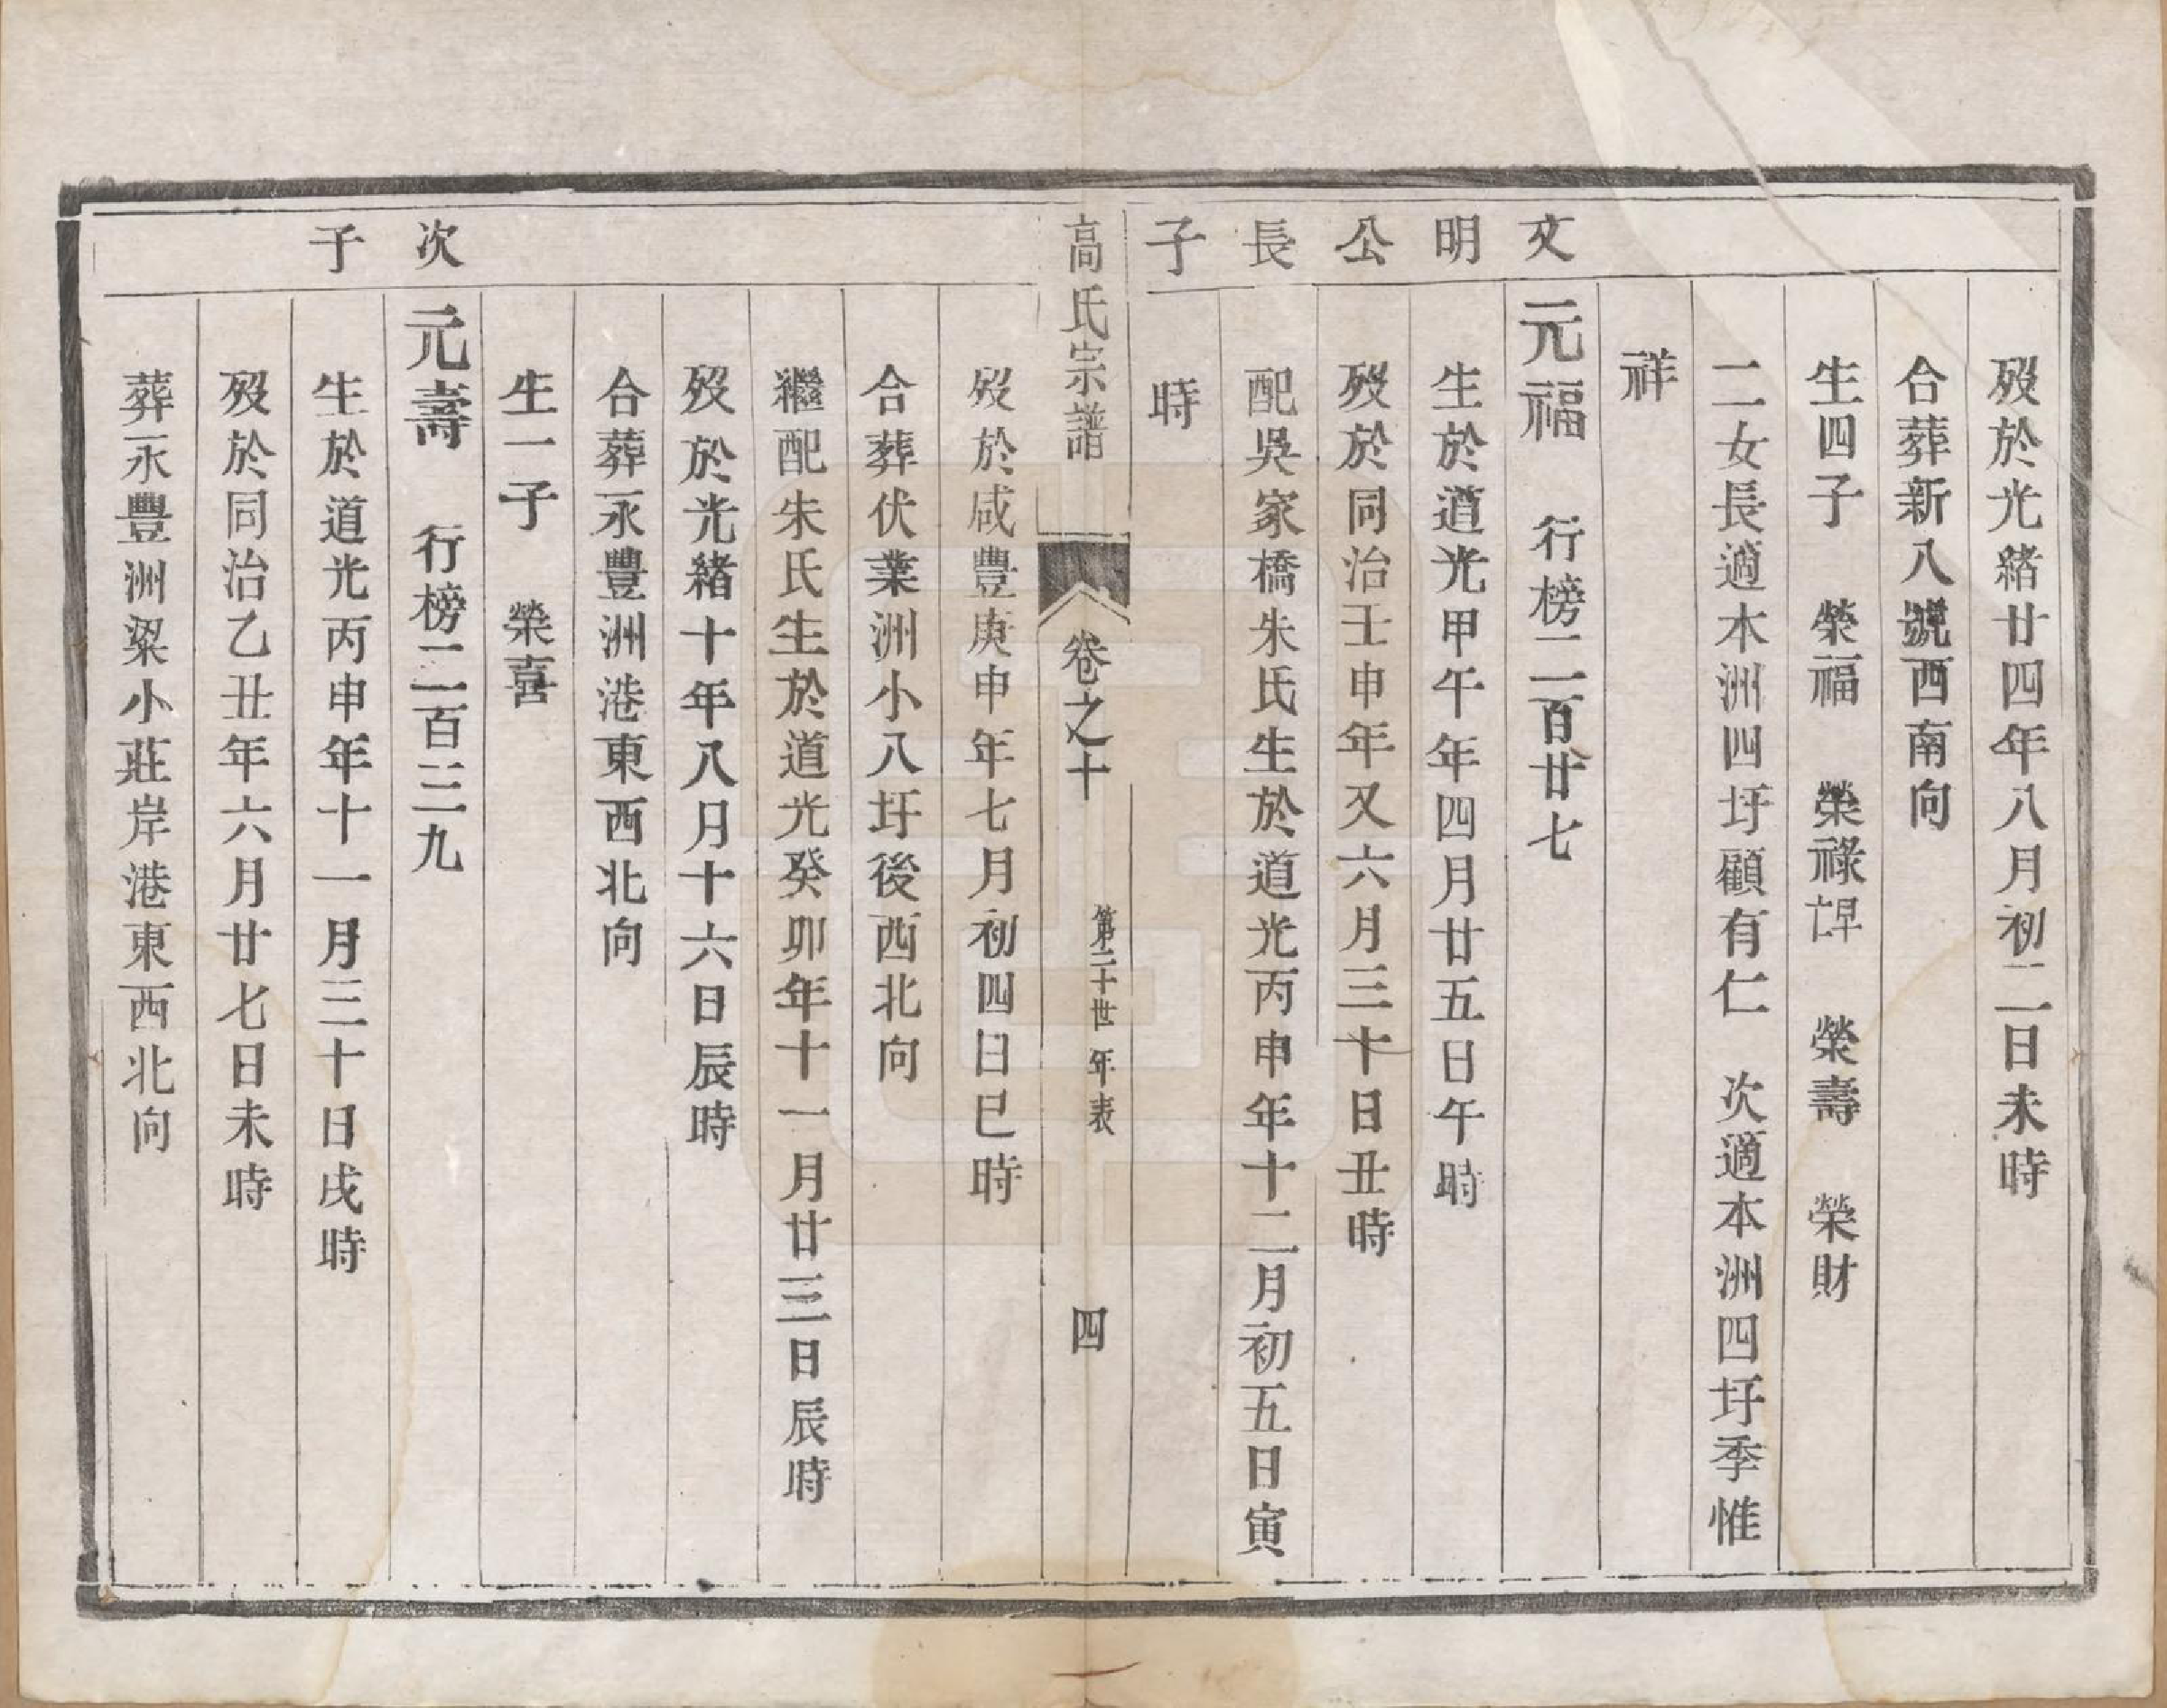 歿於光緒廿四年八月初二日未時
合葬新八號西南向
生四子　榮福　榮祿早亡　榮壽　榮財
二女長適本洲四圩顧有仁　次適本洲四圩季惟
祥
文明公長子
元福　行榜二百廿七
生於道光甲午年四月廿五日午時
歿於同治壬申年又六月三十日丑時
配吳家橋朱氏生於道光丙申年十二月初五日寅
時
高氏宗譜　卷之十　第二十世　年表　四
歿於咸豐庚申年七月初四日巳時
合葬伏業洲小八圩後西北向
繼配朱氏生於道光癸卯年十一月廿三日辰時
歿於光緒十年八月十六日辰時
合葬永豐洲港東西北向
生一子　榮喜
次子
元壽　行榜二百三九
生於道光丙申年十一月三十日戌時
歿於同治乙丑年六月廿七日未時
葬永豐洲梁小莊岸港東西北向